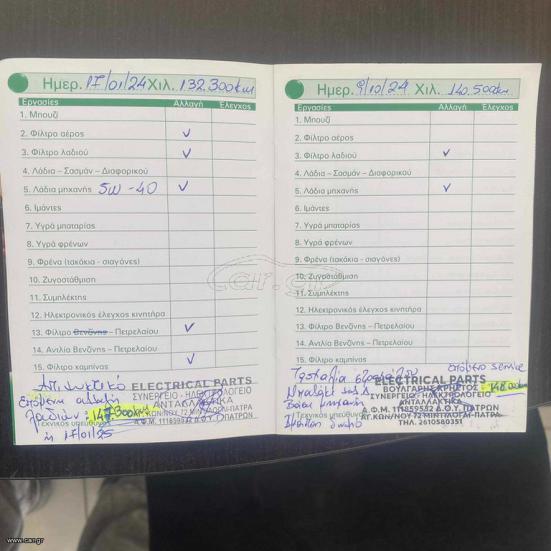 Ημερ. 17/01/24 Χιλ. 132.300km
Εργασίες Αλλαγή Έλεγχος
1. Μπουζί
2. Φίλτρο αέρος ✓
3. Φίλτρο λαδιού ✓
4. Λάδια - Σασμάν - Διαφορικού
5. Λάδια μηχανής 5W-40 ✓
6. Ιμάντες
7. Υγρά μπαταρίας
8. Υγρά φρένων
9. Φρένα (τακάκια - σιαγόνες)
10. Ζυγοστάθμιση
11. Συμπλέκτης
12. Ηλεκτρονικός έλεγχος κινητήρα
13. Φίλτρο Βενζίνης - Πετρελαίου ✓
14. Αντλία Βενζίνης - Πετρελαίου
15. Φίλτρο καμπίνας ✓
Αντιψυκτικό
επόμενη αλλαγή
λαδιών: 147.300km
ή 17/01/25
Τεχνικός υπεύθυνος
ELECTRICAL PARTS
ΣΥΝΕΡΓΕΙΟ - ΗΛΕΚΤΡΟΛΟΓΕΙΟ
ΑΝΤΑΛΛΑΚΤΙΚΑ
72 ΜΙΝΤΙΛΟΓΛΙ-ΠΑΤΡΑ
Α.Φ.Μ. 111859532 Δ.Ο.Υ. ΠΑΤΡΩΝ
Ημερ. 9/10/24 Χιλ. 140.500km
Εργασίες Αλλαγή Έλεγχος
1. Μπουζί
2. Φίλτρο αέρος
3. Φίλτρο λαδιού ✓
4. Λάδια - Σασμάν - Διαφορικού
5. Λάδια μηχανής ✓
6. Ιμάντες
7. Υγρά μπαταρίας
8. Υγρά φρένων
9. Φρένα (τακάκια - σιαγόνες)
10. Ζυγοστάθμιση
11. Συμπλέκτης
12. Ηλεκτρονικός έλεγχος κινητήρα
13. Φίλτρο Βενζίνης - Πετρελαίου
14. Αντλία Βενζίνης - Πετρελαίου
15. Φίλτρο καμπίνας
επόμενο service
Βάση μηχανής
Τεχνικός υπεύθυνος
ELECTRICAL PARTS
ΒΟΥΛΓΑΡΗΣ ΧΡΗΣΤΟΣ
ΣΥΝΕΡΓΕΙΟ - ΗΛΕΚΤΡΟΛΟΓΕΙΟ
ΑΝΤΑΛΛΑΚΤΙΚΑ
Α.Φ.Μ. 111859532 Δ.Ο.Υ. ΠΑΤΡΩΝ
ΑΓ.ΚΩΝ/ΝΟΥ 72 ΜΙΝΤΙΛΟΓΛΙ-ΠΑΤΡΑ
ΤΗΛ. 2610580351
car.gr
www.car.gr